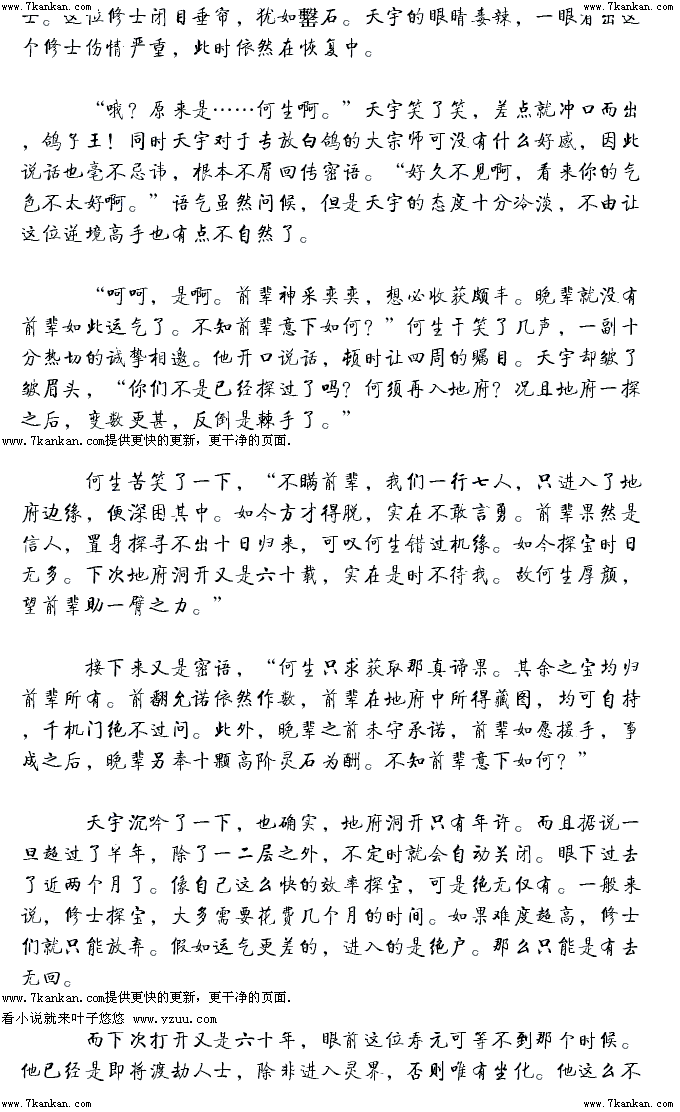 www.7kankan.com www.7kankan.com
士。这位修士闭目垂帘，犹如磐石。天宇的眼睛毒辣，一眼看出这
个修士伤情严重，此时依然在恢复中。
“哦？原来是……何生啊。”天宇笑了笑，差点就冲口而出
，鸽子王！同时天宇对于专放白鸽的大宗师可没有什么好感，因此
说话也毫不忌讳，根本不屑回传密语。“好久不见啊，看来你的气
色不太好啊。”语气虽然问候，但是天宇的态度十分冷淡，不由让
这位逆境高手也有点不自然了。
“呵呵，是啊。前辈神采奕奕，想必收获颇丰。晚辈就没有
前辈如此运气了。不知前辈意下如何？”何生干笑了几声，一副十
分热切的诚挚相邀。他开口说话，顿时让四周的瞩目。天宇却皱了
皱眉头，“你们不是已经探过了吗？何须再入地府？况且地府一探
之后，变数更甚，反倒是棘手了。”
www.7kankan.com提供更快的更新，更干净的页面.
何生苦笑了一下，“不瞒前辈，我们一行七人，只进入了地
府边缘，便深困其中。如今方才得脱，实在不敢言勇。前辈果然是
信人，置身探寻不出十日归来，可叹何生错过机缘。如今探宝时日
无多。下次地府洞开又是六十载，实在是时不待我。故何生厚颜，
望前辈助一臂之力。”
接下来又是密语，“何生只求获取那真谛果。其余之宝均归
前辈所有。前翻允诺依然作数，前辈在地府中所得藏图，均可自持
，千机门绝不过问。此外，晚辈之前未守承诺，前辈如愿援手，事
成之后，晚辈另奉十颗高阶灵石为酬。不知前辈意下如何？”
天宇沉吟了一下，也确实，地府洞开只有年许。而且据说一
旦超过了半年，除了一二层之外，不定时就会自动关闭。眼下过去
了近两个月了。像自己这么快的效率探宝，可是绝无仅有。一般来
说，修士探宝，大多需要花费几个月的时间。如果难度超高，修士
们就只能放弃。假如运气更差的，进入的是绝户。那么只能是有去
无回。
www.7kankan.com提供更快的更新，更干净的页面.
看小说就来叶子悠悠 www.yzuu.com
而下次打开又是六十年，眼前这位寿元可等不到那个时候。
他已经是即将渡劫人士，除非进入灵界，否则唯有坐化。他这么不
www.7kankan.com www.7kankan.com